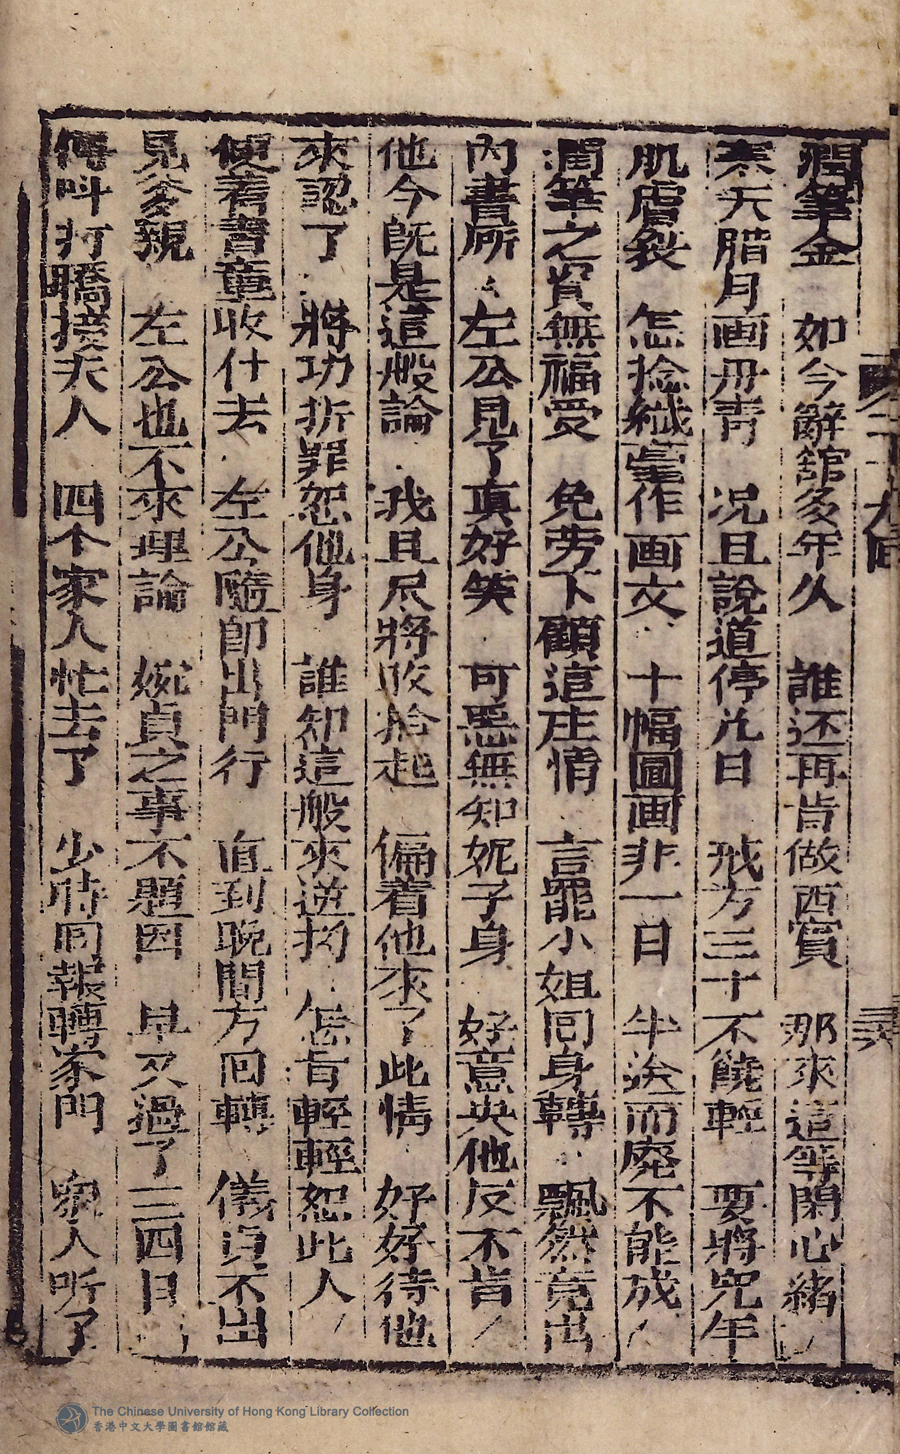 潤筆金 如今辭館多年久 誰还再肯做西賓 那來這等閑心緒
寒天腊月画丹青 况且說道停凢日 戒方三十不饒輕 要將完年
肌膚裂 怎捻纖毫作画文 十幅圖画非一日 半途而廢不能成
潤筆之資無福受 免劳下顧這庄情 言罷小姐囘身轉 飄然竟出
內書所 左公見了真好笑 可惡無知妮子身 好意央他反不肯
他今既是這般論 我且尽將收拾起 偏着他來了此情 好好待他
來認了 將功折罪恕他身 誰知這般來逆抝 怎肯輕輕恕此人
便着書童收什去 左公隨卽出門行 直到晚間方回轉 儀貞不出
見爹親 左公也不來理論 婉貞之事不題因 早又過了三四日
傳呌打轎接夫人 四个家人忙去了 少時囘報轉家門 衆人听了
第十九囘
The Chinese University of Hong Kong Library Collection
香港中文大學圖書館館藏